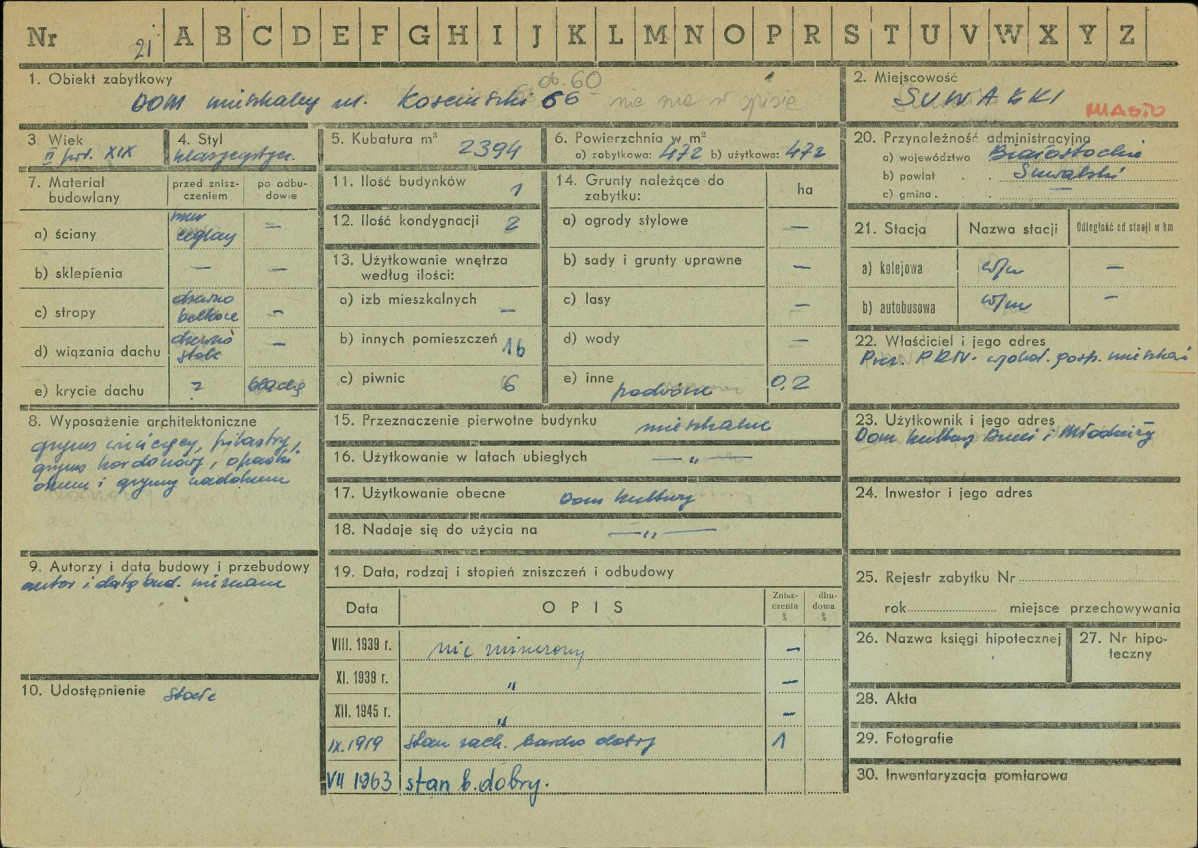 Nr 21 A B C D E F G H I J K L M N O P R S T U V W X Y Z
1. Obiekt zabytkowy
ob. 60
DOM mieszkalny ul. Kościuszki 66 nie ma w spisie
2. Miejscowość
SUWAŁKI
MIASTO
3. Wiek
II poł. XIX
4. Styl
klasycystycz.
5. Kubatura m³ 2394
6. Powierzchnia w m²
a) zabytkowa: 472 b) użytkowa: 472
20. Przynależność administracyjna
a) województwo Białostockie
b) powiat Suwalski
c) gmina —
7. Materiał budowlany
przed zniszczeniem
po odbudowie
a) ściany mur ceglany —
b) sklepienia — —
c) stropy drewno belkowe —
d) wiązania dachu drewno stolc —
e) krycie dachu ? blachą
11. Ilość budynków 1
12. Ilość kondygnacji 2
13. Użytkowanie wnętrza
według ilości:
a) izb mieszkalnych —
b) innych pomieszczeń 16
c) piwnic 6
14. Grunty należące do
zabytku: ha
a) ogrody stylowe —
b) sady i grunty uprawne —
c) lasy —
d) wody —
e) inne podwórze 0,2
21. Stacja Nazwa stacji Odległość od stacji w km
a) kolejowa w/m —
b) autobusowa w/m —
22. Właściciel i jego adres
Prez. PRN
gosp. mieszkan
8. Wyposażenie architektoniczne
gzyms wieńczący, pilastry,
gzyms kordonowy, opaski
okienn i gzymsy nadokienne
15. Przeznaczenie pierwotne budynku mieszkalne
16. Użytkowanie w latach ubiegłych — „ —
17. Użytkowanie obecne Dom kultury
18. Nadaje się do użycia na — „ —
23. Użytkownik i jego adres
Dom kultury Dzieci i Młodzieży
24. Inwestor i jego adres
9. Autorzy i data budowy i przebudowy
autor i data bud. nieznane
10. Udostępnienie stałe
19. Data, rodzaj i stopień zniszczeń i odbudowy
Data OPIS Zniszczenia % dbudowa %
VIII. 1939 r. nie zniszczony —
XI. 1939 r. „ —
XII. 1945 r. „ —
IX.1959 stan zach. bardzo dobry 1
VII 1963 stan b. dobry.
25. Rejestr zabytku Nr
rok miejsce przechowywania
26. Nazwa księgi hipotecznej
27. Nr hipoteczny
28. Akta
29. Fotografie
30. Inwentaryzacja pomiarowa